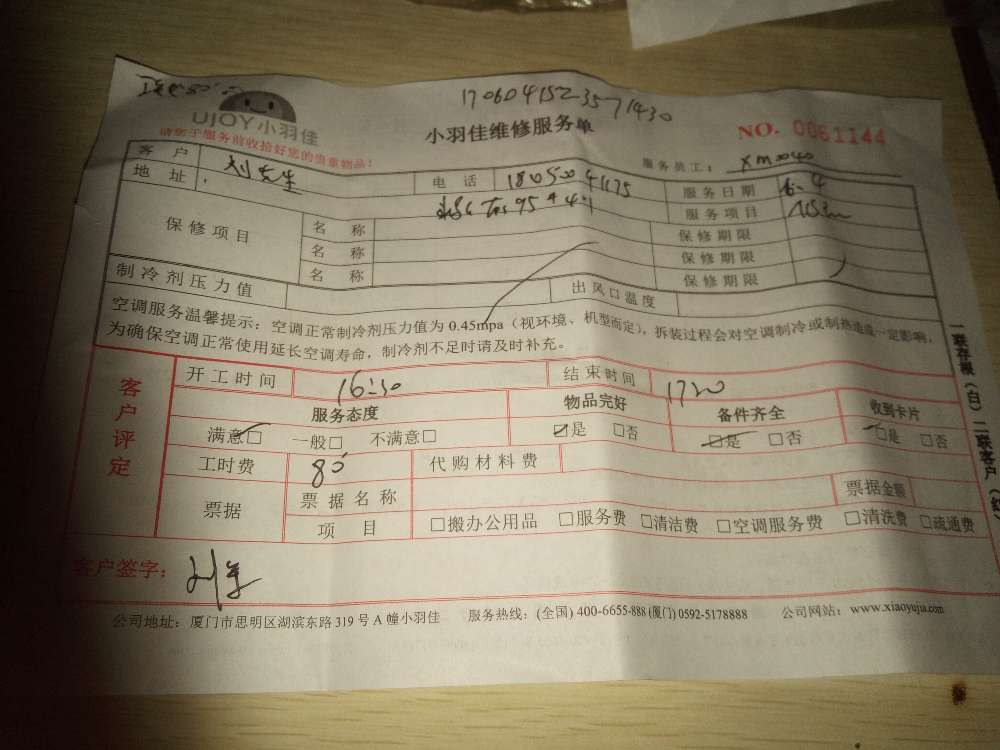 1706041523571430
UJOY小羽佳
小羽佳维修服务单
NO. 0061144
请您于服务前收拾好您的贵重物品!
服务员工: XM0040
客户 刘先生 电话 服务日期 6-4
地址 服务项目
保修项目 名称 保修期限
名称 保修期限
名称 保修期限
制冷剂压力值 出风口温度
空调服务温馨提示: 空调正常制冷剂压力值为 0.45mpa (视环境、机型而定), 拆装过程会对空调制冷或制热造成一定影响,
为确保空调正常使用延长空调寿命, 制冷剂不足时请及时补充。
客户评定
开工时间 16:30 结束时间 1720
服务态度 物品完好 备件齐全 收到卡片
满意□ 一般□ 不满意□ □是 □否 □是 □否 □是 □否
工时费 80 代购材料费
票据 票据名称 票据金额
项目 □搬办公用品 □服务费 □清洁费 □空调服务费 □清洗费 □疏通费
客户签字:
公司地址: 厦门市思明区湖滨东路 319 号 A 幢小羽佳 服务热线: (全国) 400-6655-888 (厦门) 0592-5178888 公司网站: www.xiaoyujia.com
一联存根 (白) 二联客户